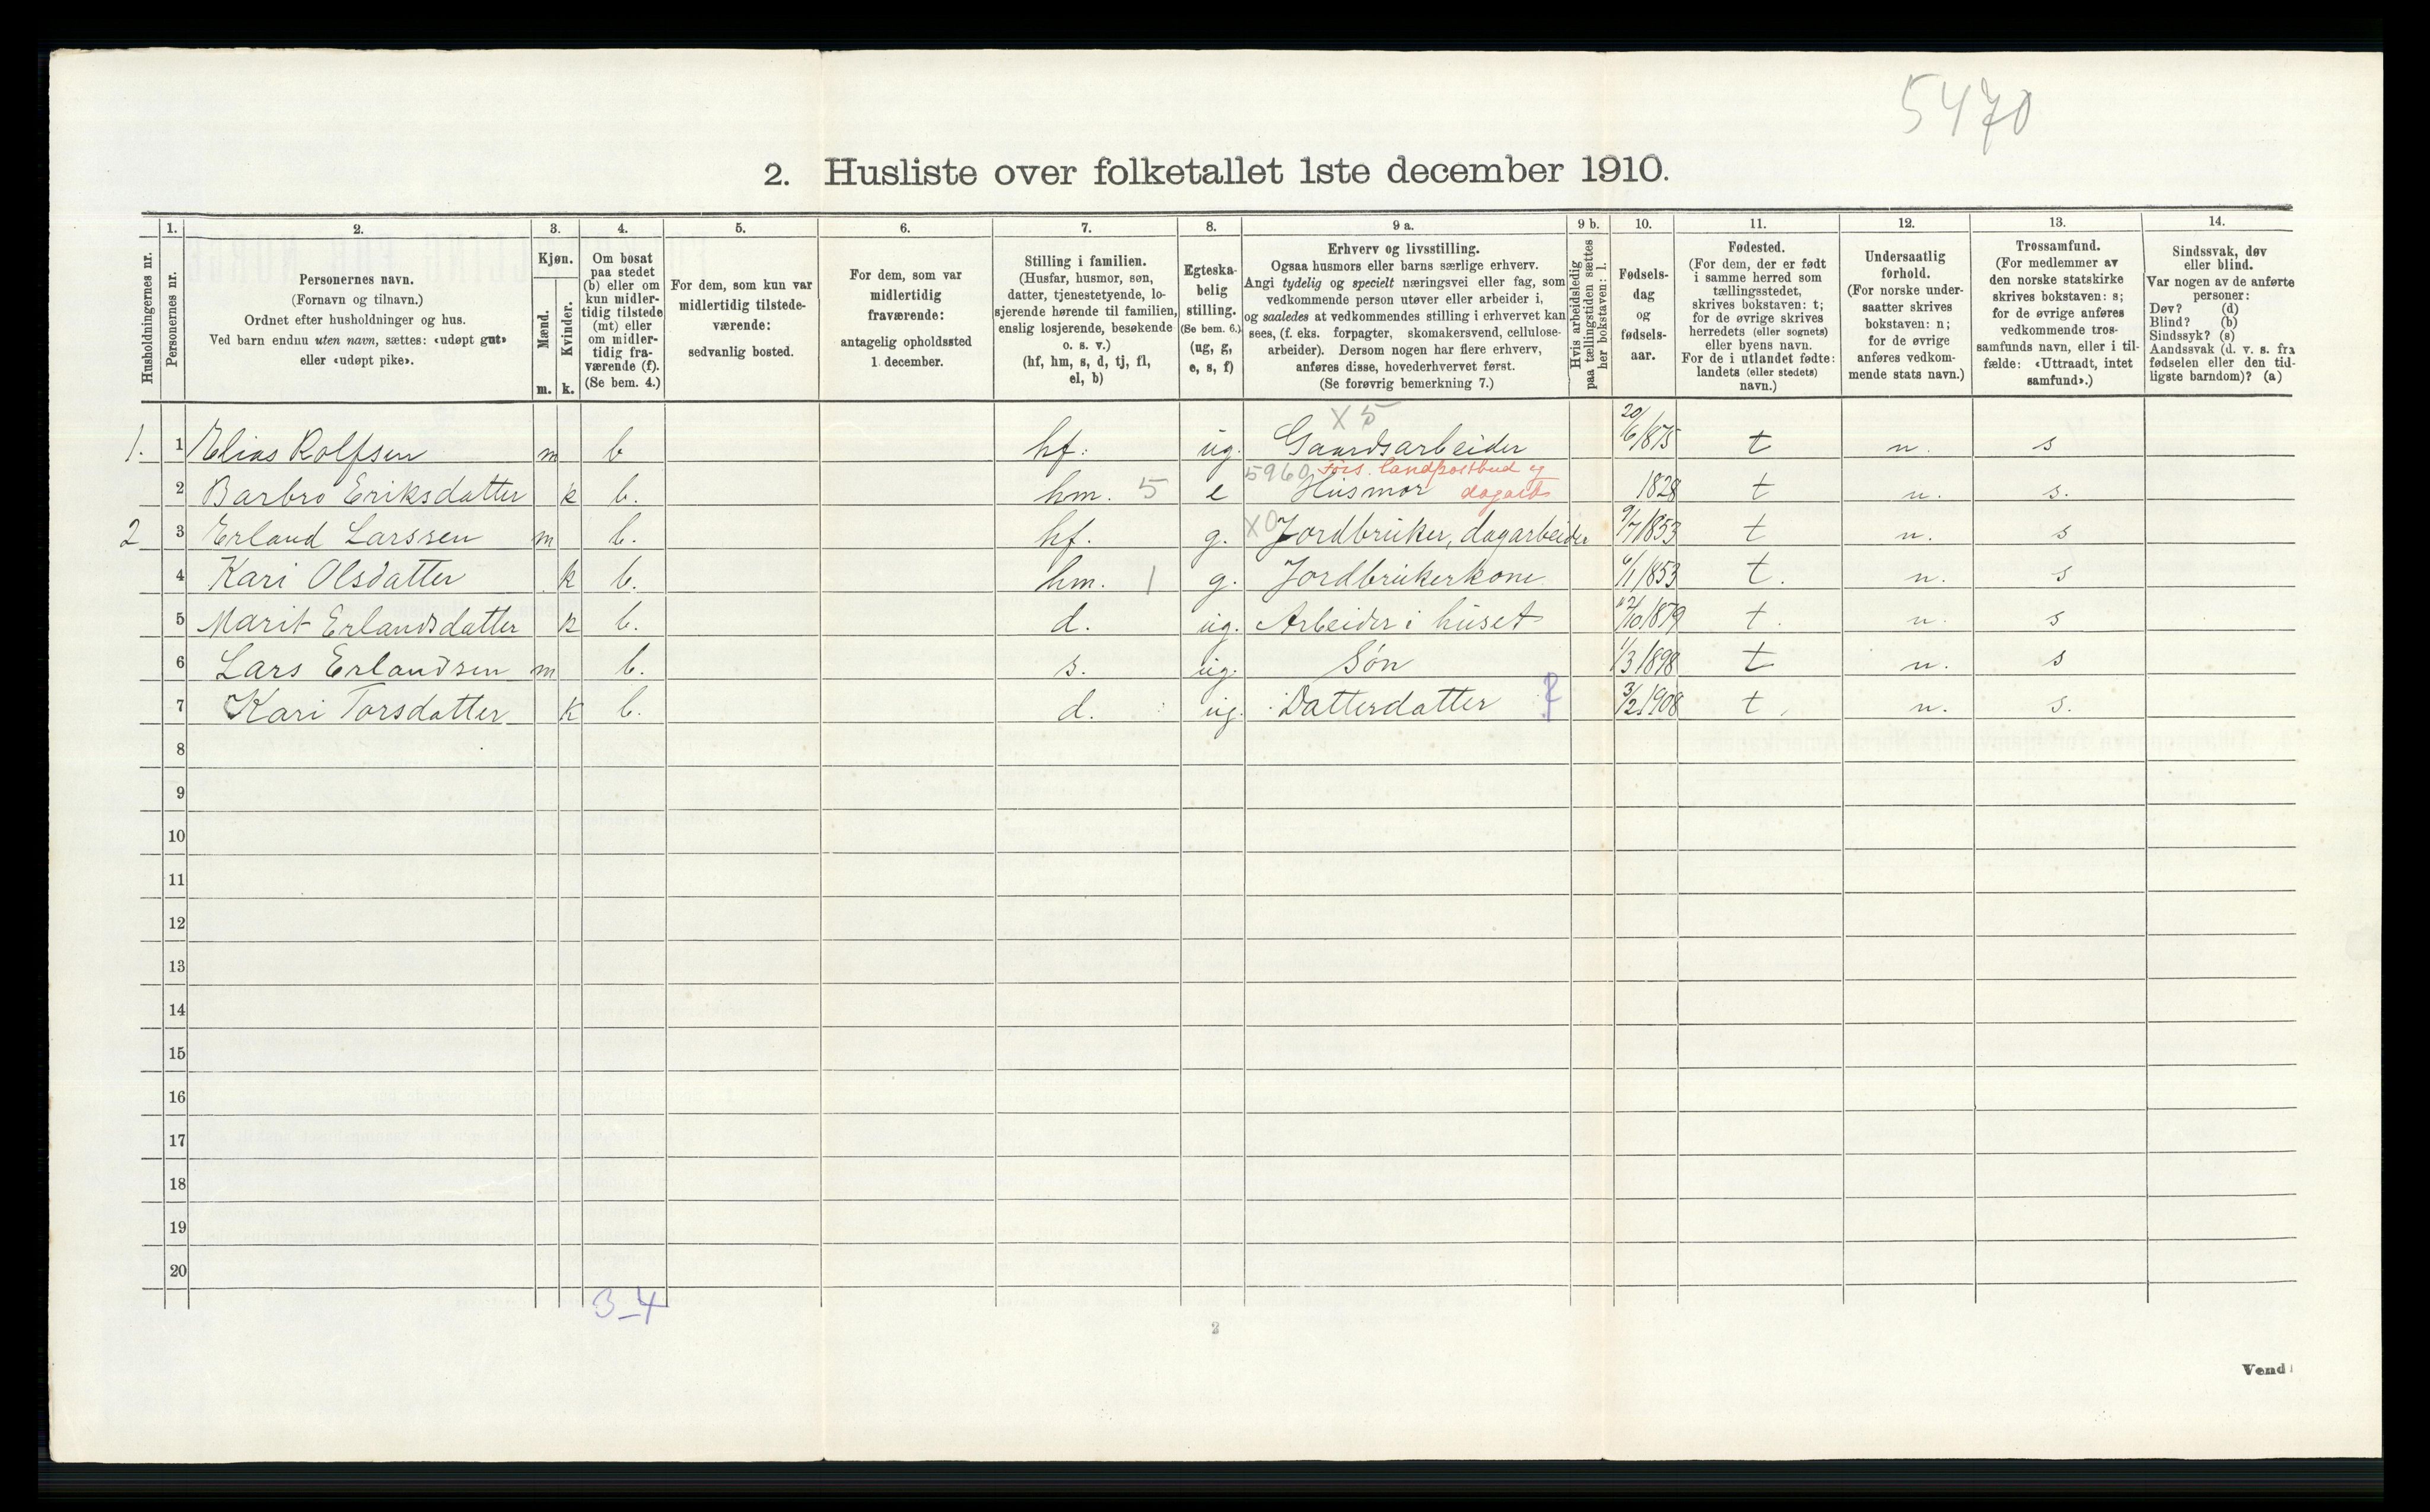 5470
2. Husliste over folketallet 1ste december 1910.
Husholdningernes nr.
1. Personernes nr.
2. Personernes navn.
(Fornavn og tilnavn.)
Ordnet efter husholdninger og hus.
Ved barn endnu uten navn, sættes: «udøpt gut»
eller «udøpt pike».
3. Kjøn.
Mænd. m.
Kvinder. k.
4. Om bosat
paa stedet
(b) eller om
kun midler-
tidig tilstede
(mt) eller
om midler-
tidig fra-
værende (f).
(Se bem. 4.)
5. For dem, som kun var
midlertidig tilstede-
værende:
sedvanlig bosted.
6. For dem, som var
midlertidig
fraværende:
antagelig opholdssted
1. december.
7. Stilling i familien.
(Husfar, husmor, søn,
datter, tjenestetyende, lo-
sjerende hørende til familien,
enslig losjerende, besøkende
o. s. v.)
(hf, hm, s, d, tj, fl,
el, b)
8. Egteska-
belig
stilling.
(Se bem. 6.)
(ug, g,
e, s, f)
9 a. Erhverv og livsstilling.
Ogsaa husmors eller barns særlige erhverv.
Angi tydelig og specielt næringsvei eller fag, som
vedkommende person utøver eller arbeider i,
og saaledes at vedkommendes stilling i erhvervet kan
sees, (f. eks. forpagter, skomakersvend, cellulose-
arbeider). Dersom nogen har flere erhverv,
anføres disse, hovederhvervet først.
(Se forøvrig bemerkning 7.)
9 b. Hvis arbeidsledig
paa tællingstiden sættes
her bokstaven: l.
10. Fødsels-
dag
og
fødsels-
aar.
11. Fødested.
(For dem, der er født
i samme herred som
tællingsstedet,
skrives bokstaven: t;
for de øvrige skrives
herredets (eller sognets)
eller byens navn.
For de i utlandet fødte:
landets (eller stedets)
navn.)
12. Undersaatlig
forhold.
(For norske under-
saatter skrives
bokstaven: n;
for de øvrige
anføres vedkom-
mende stats navn.)
13. Trossamfund.
(For medlemmer av
den norske statskirke
skrives bokstaven: s;
for de øvrige anføres
vedkommende tros-
samfunds navn, eller i til-
fælde: «Uttraadt, intet
samfund».)
14. Sindssvak, døv
eller blind.
Var nogen av de anførte
personer:
Døv? (d)
Blind? (b)
Sindssyk? (s)
Aandssvak (d. v. s. fra
fødselen eller den tid-
ligste barndom)? (a)
X 5
1. 1 Elias Rolfsen m b hf. ug. Gaardsarbeider 20/6/875 t n. s
5960 Førs. landpostbud og
2 Barbro Eriksdatter k b. hm. 5 e Husmor dagarb 1828 t n. s.
2 3 Erland Larssen m b. hf. g. X0 Jordbruker, dagarbeider 9/7/853 t n. s
4 Kari Olsdatter k b. hm. 1 g. Jordbrukerkone 6/1/853 t. n. s
5 Marit Erlandsdatter k b. d. ug. Arbeider i huset 12/10/879 t. n. s
6 Lars Erlandsen m b. s. ug. Søn 1/3 1898 t n. s
7 Kari Torsdatter k b. d. ug. Datterdatter ? 3/2 1908 t. n. s.
8
9
10
11
12
13
14
15
16
17
18
19
20
3-4
2
Vend